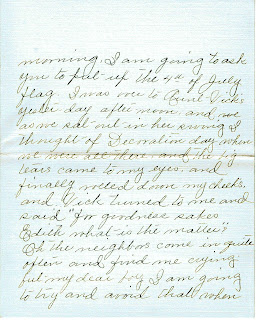 morning. I am going to ask
you to put up the 4th of July
flag. I was over to Aunt Vick's
yesterday after noon, and we
as we sat out in her swing I
thought of Decoration day when
we were all there and the big
tears came to my eyes, and
finally rolled down my cheeks,
and Vick turned to me and
said "for goodness sakes
Edith what is the matter"?
Oh the neighbors come in quite
often and find me crying
but my dear boy I am going
to try and avoid that when